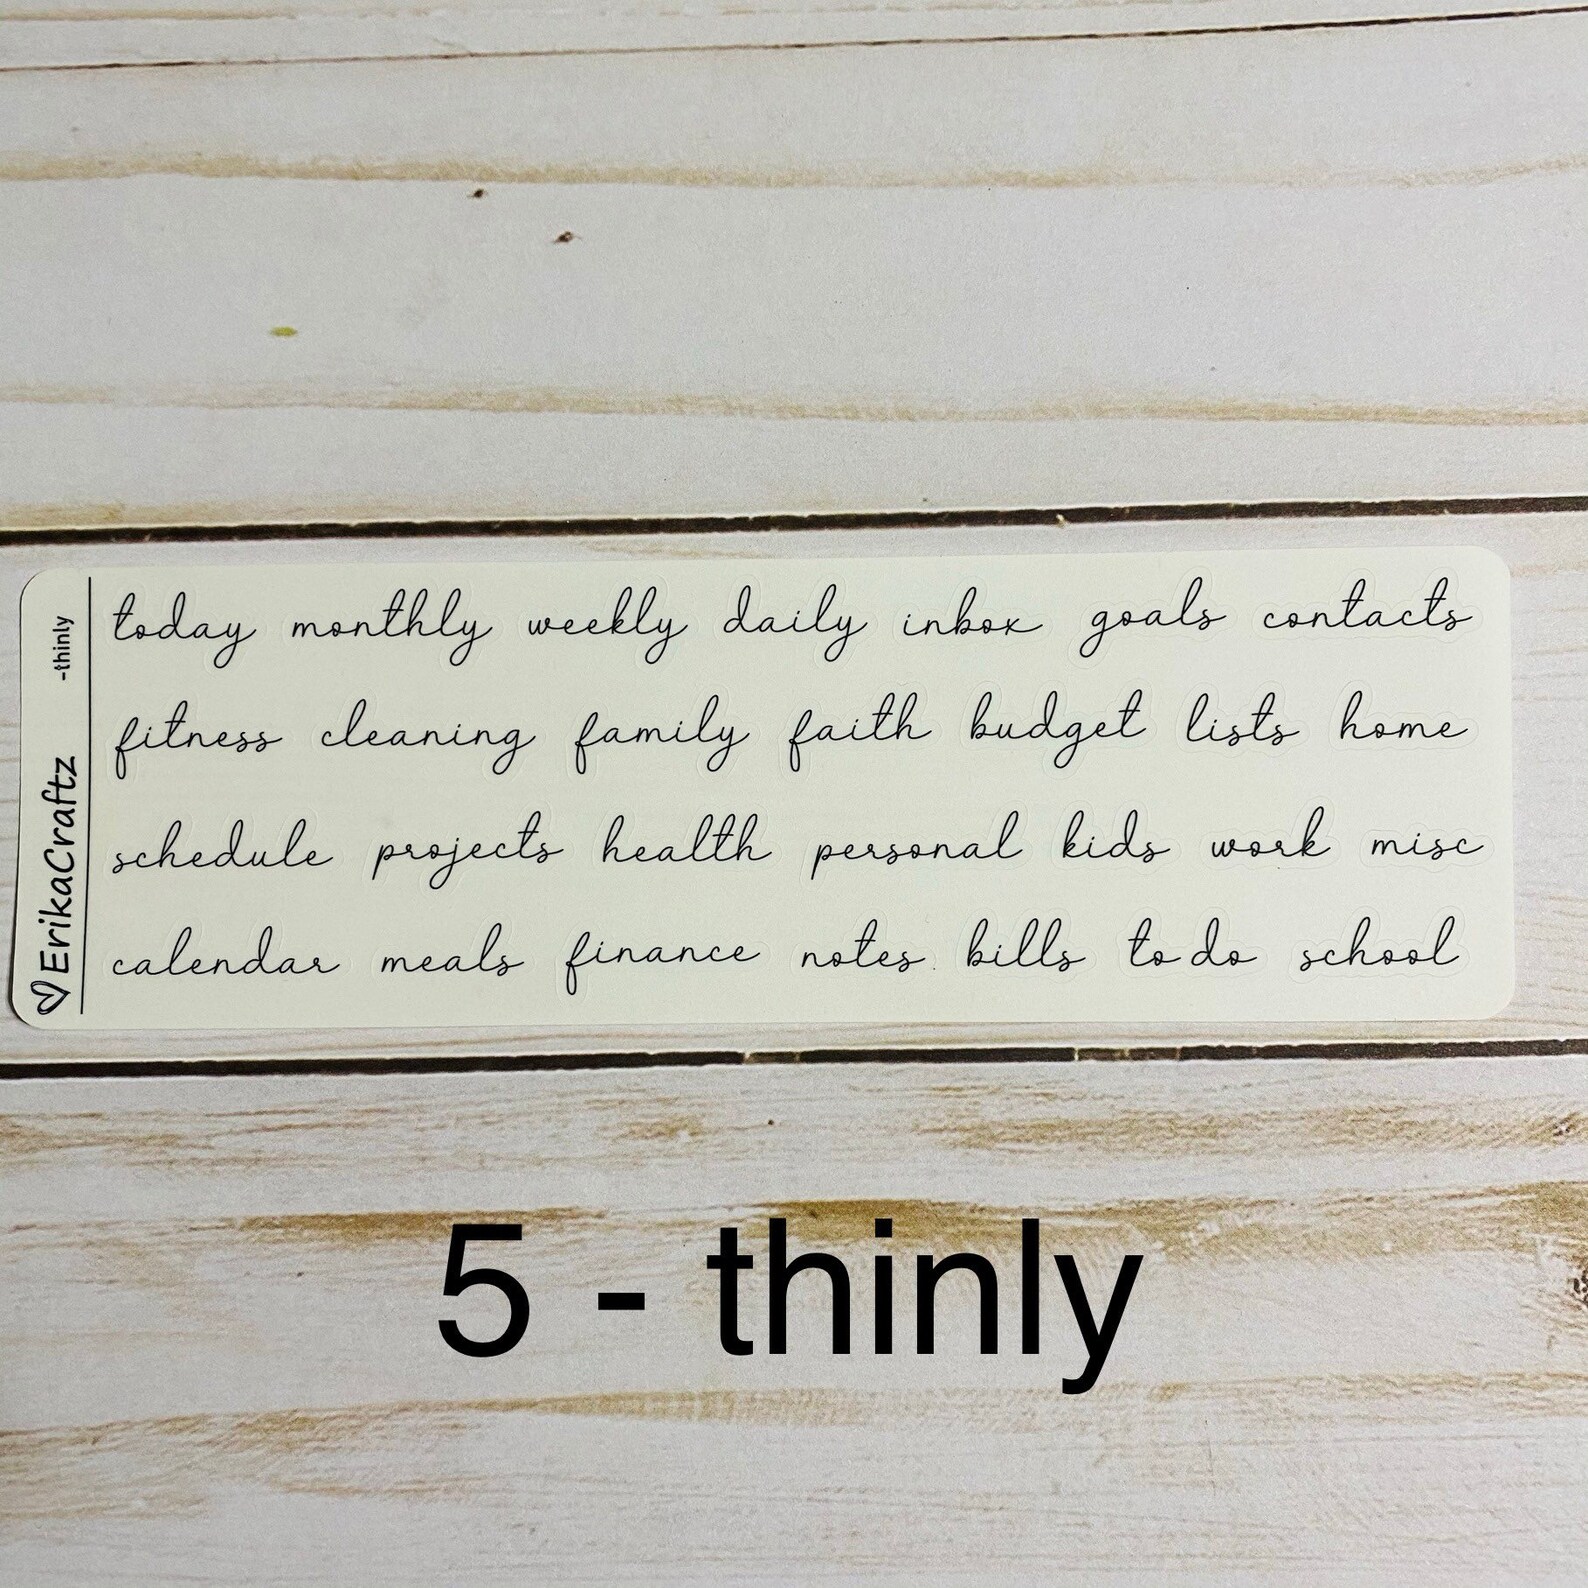 -thinly
ErikaCraftz
today monthly weekly daily inbox goals contacts
fitness cleaning family faith budget lists home
schedule projects health personal kids work misc
calendar meals finance notes bills to do school
5 - thinly